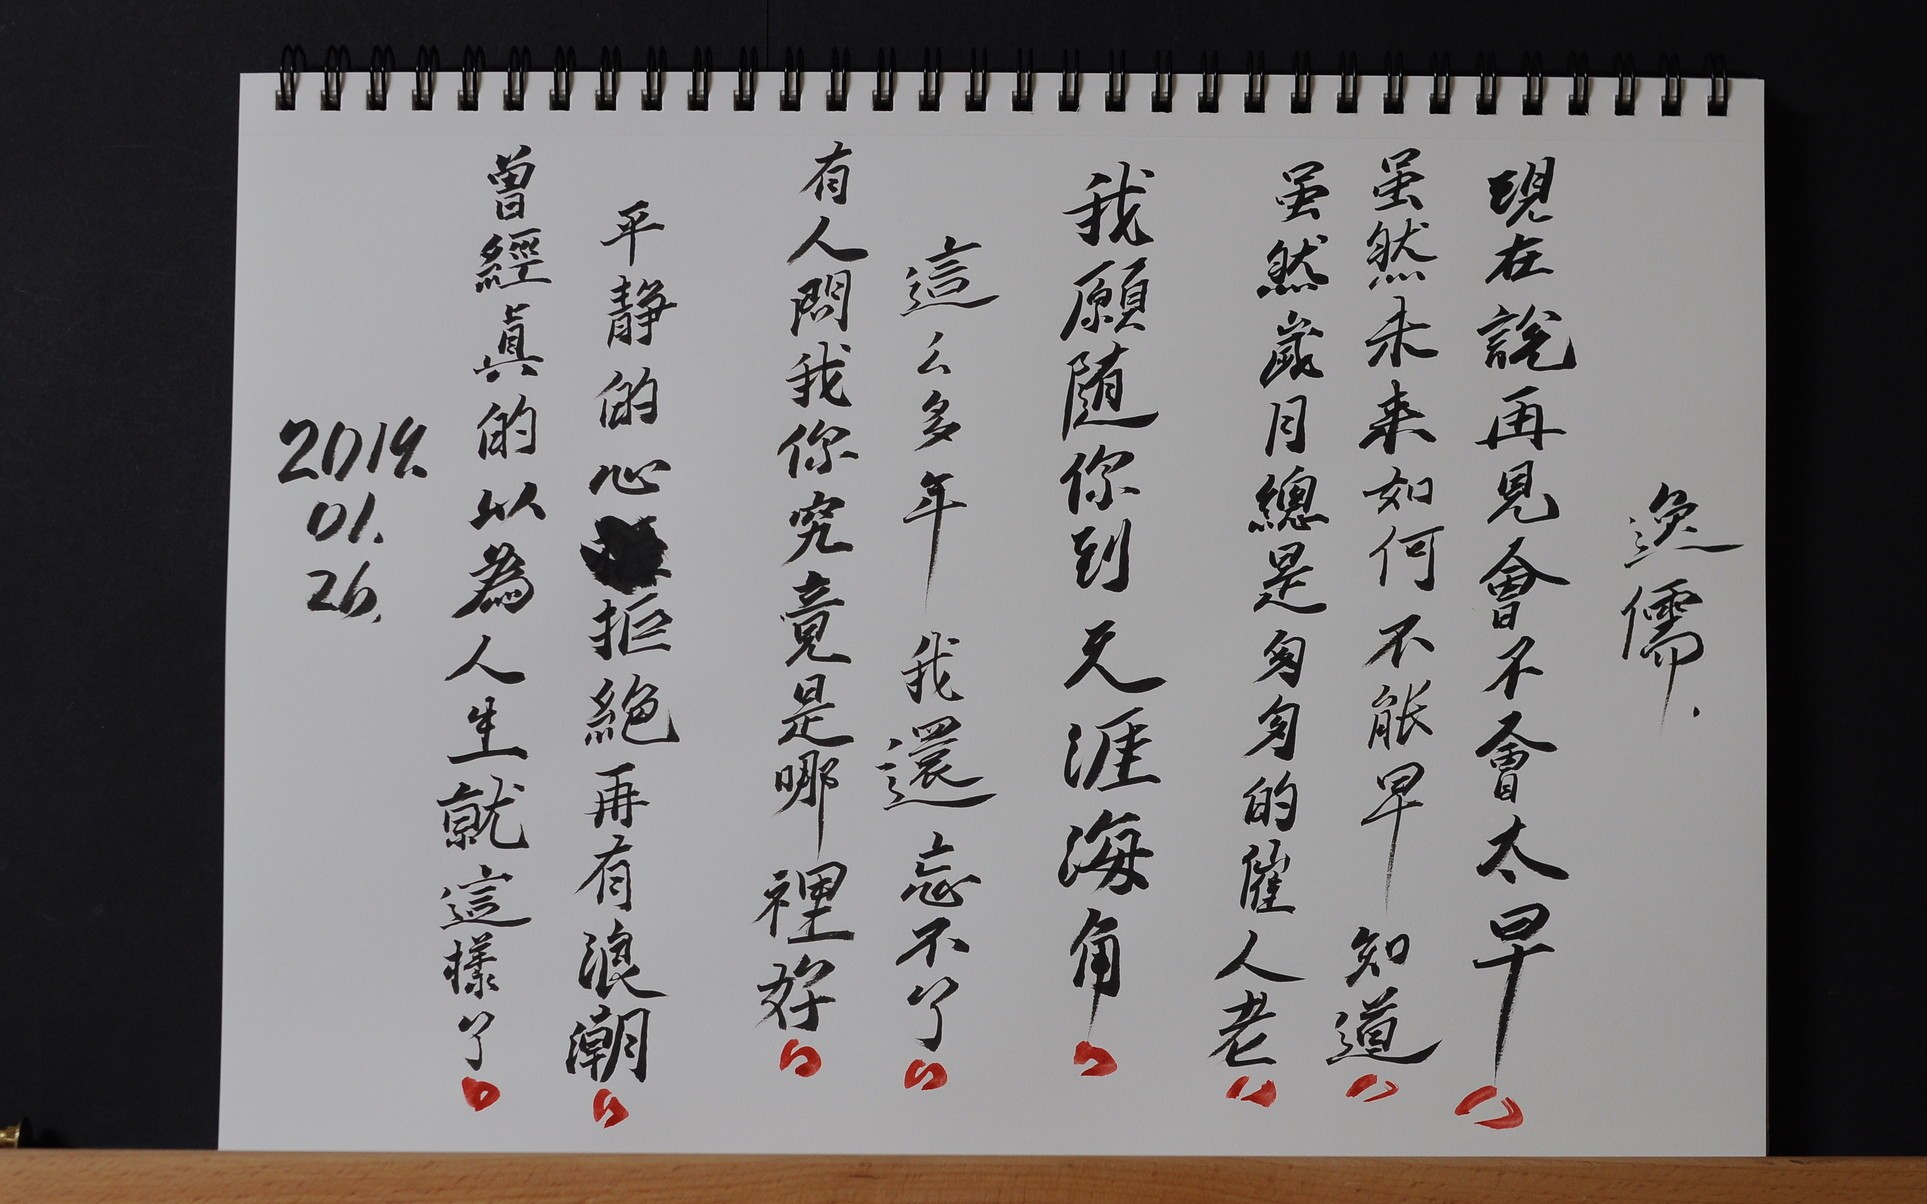 逸儒.
現在說再見會不會太早
虽然未来如何不能早知道
虽然歲月總是匆匆的催人老
我願随你到天涯海角
這么多年我還忘不了
有人問我你究竟是哪裡好
平静的心拒絕再有浪潮
曾經真的以為人生就這樣了
2019.
01.
26.